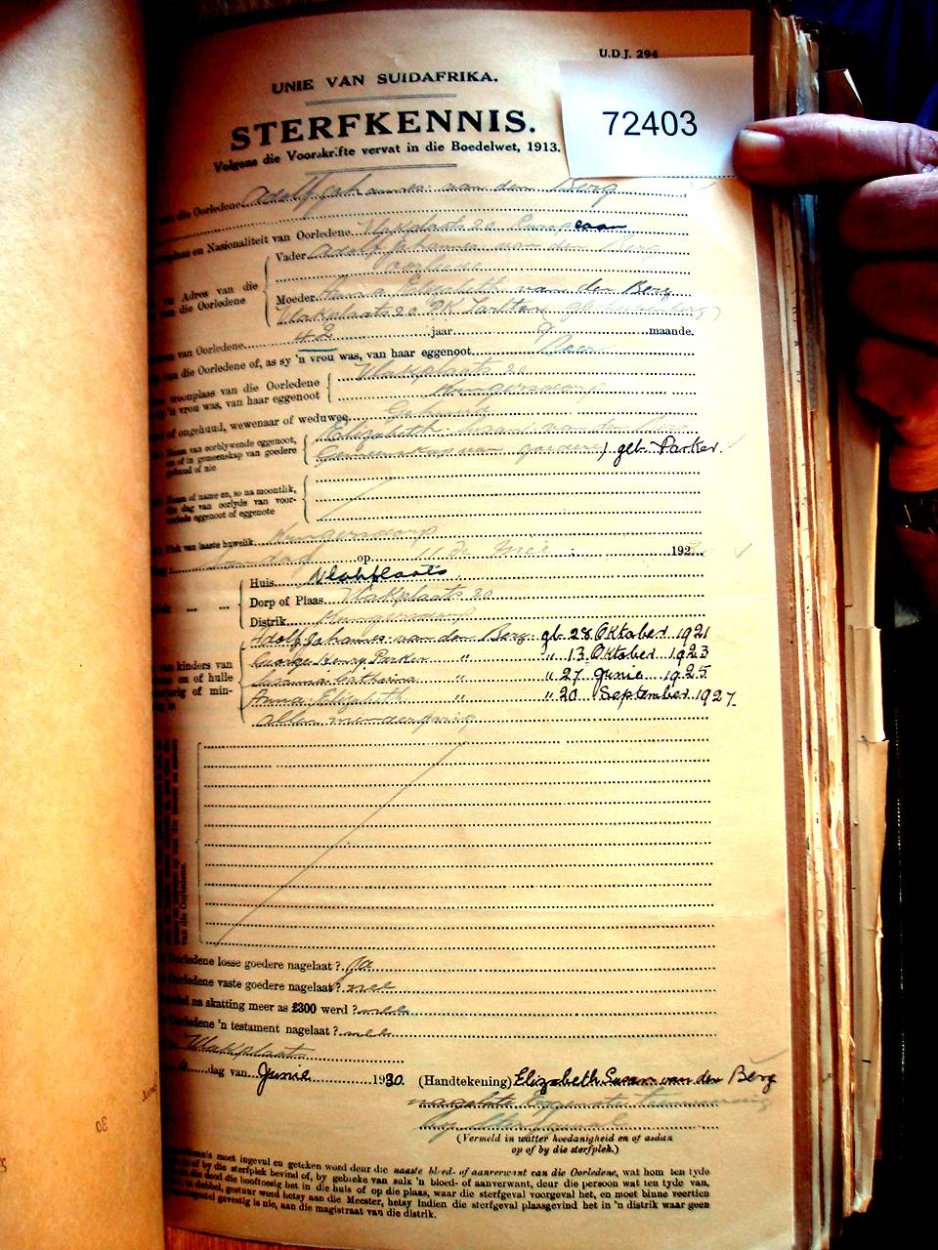 U.D.J. 294
UNIE VAN SUIDAFRIKA.
72403
STERFKENNIS.
Volgens die Voorskrifte vervat in die Boedelwet, 1913.
die Oorledene Adolf Johannes van den Berg
en Nasionaliteit van Oorledene Vlakplaats 20 Europeaan
Vader Adolf Johannes van den Berg
Adres van die
van die Oorledene
Moeder Anna Elizabeth van den Berg
Vlakplaats 20 PK Tarlton
van Oorledene 42 jaar 9 maande.
van die Oorledene of, as sy 'n vrou was, van haar eggenoot Boer
woonplaas van die Oorledene Vlakplaats 20
'n vrou was, van haar eggenoot Krugersdorp
of ongehuud, wewenaar of weduwee Gehuud
Naam van oorblywende eggenoot, Elizabeth Susan van den Berg
en of in gemeenskap van goedere Gemeenskap van goedere) geb. Parker.
getroud of nie
Naam of name en, so na moontlik,
die dag van oorlyde van voor-
oorlede eggenoot of eggenote
Plek van laaste huwelik Krugersdorp
op 11de Mei 192
Huis Vlakplaats
Dorp of Plaas Vlakplaats 20
Distrik Krugersdorp
Adolf Johannes van den Berg gb. 28 Oktober 1921
van kinders van George Henry Parker " " 13 Oktober 1923
en of hulle Susanna Catharina " " 27 Junie 1925
of min- Anna Elizabeth " " 20 September 1927.
allen minderjarig
van die Oorledene.
Oorledene losse goedere nagelaat? Ja
Oorledene vaste goedere nagelaat? nee
na skatting meer as £300 werd? nee
Oorledene 'n testament nagelaat? nee
Vlakplaats
dag van Junie 1930. (Handtekening) Elizabeth Susan van den Berg
nagelate eggenote teenwoordig
(Vermeld in watter hoedanigheid en of asdan
op of by die sterfplek.)
moet ingevul en geteken word deur die naaste bloed- of aanverwant van die Oorledene, wat hom ten tyde
of by die sterfplek bevind of, by gebreke van sulk 'n bloed- of aanverwant, deur die persoon wat ten tyde van,
die dood die hooftoesig het in die huis of op die plaas, waar die sterfgeval voorgeval het, en moet binne veertien
in dubbel, gestuur word hetsy aan die Meester, hetsy indien die sterfgeval plaasgevind het in 'n distrik waar geen
gevestig is nie, aan die magistraat van die distrik.